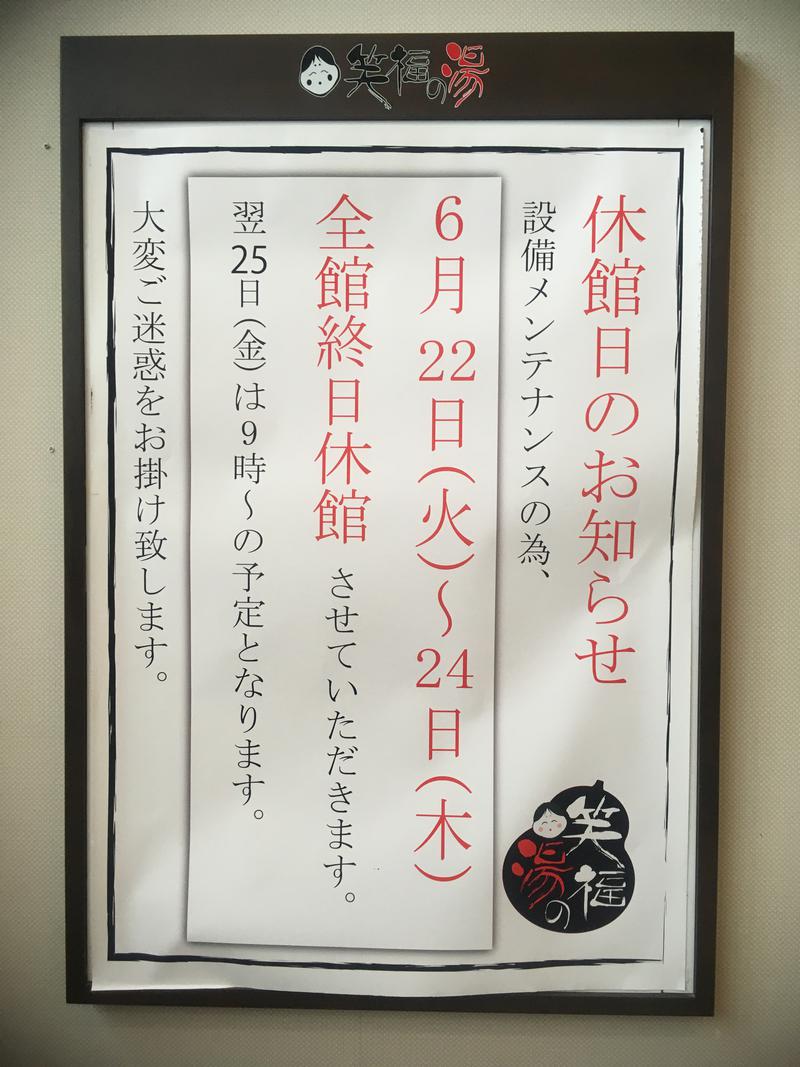 笑福の湯
休館日のお知らせ
設備メンテナンスの為、
6月22日(火)～24日(木)
全館終日休館させていただきます。
翌25日(金)は9時～の予定となります。
大変ご迷惑をお掛け致します。
笑福の湯